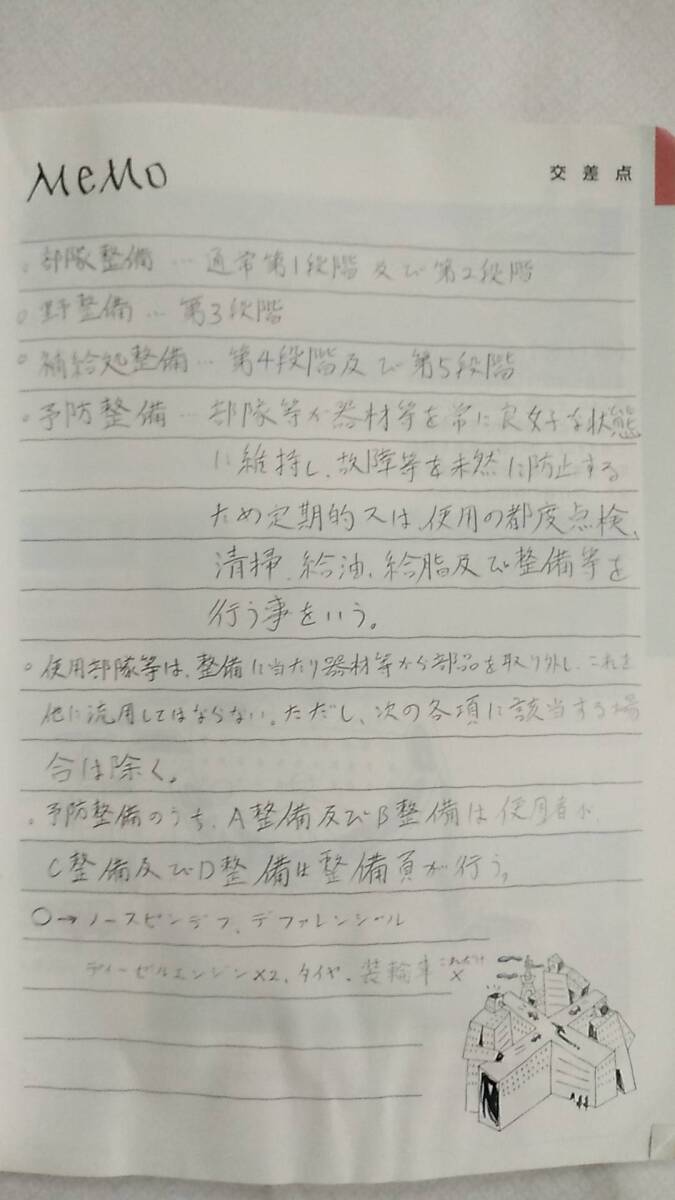 MeMo
交差点
。部隊整備 … 通常第1段階及び第2段階
○野整備 … 第3段階
○補給処整備 … 第4段階及び第5段階
○予防整備 … 部隊等が器材等を常に良好な状態
に維持し、故障等を未然に防止する
ため定期的又は、使用の都度点検、
清掃、給油、給脂及び整備等を
行う事をいう。
○使用部隊等は、整備に当たり器材等から部品を取り外し、これを
他に流用してはならない。ただし、次の各項に該当する場
合は除く。
。予防整備のうち、A整備及びB整備は使用者が、
C整備及びD整備は整備員が行う。
○→ノースピンデフ、デファレンシャル
ディーゼルエンジン×2、タイヤ、装輪車 これだけ×